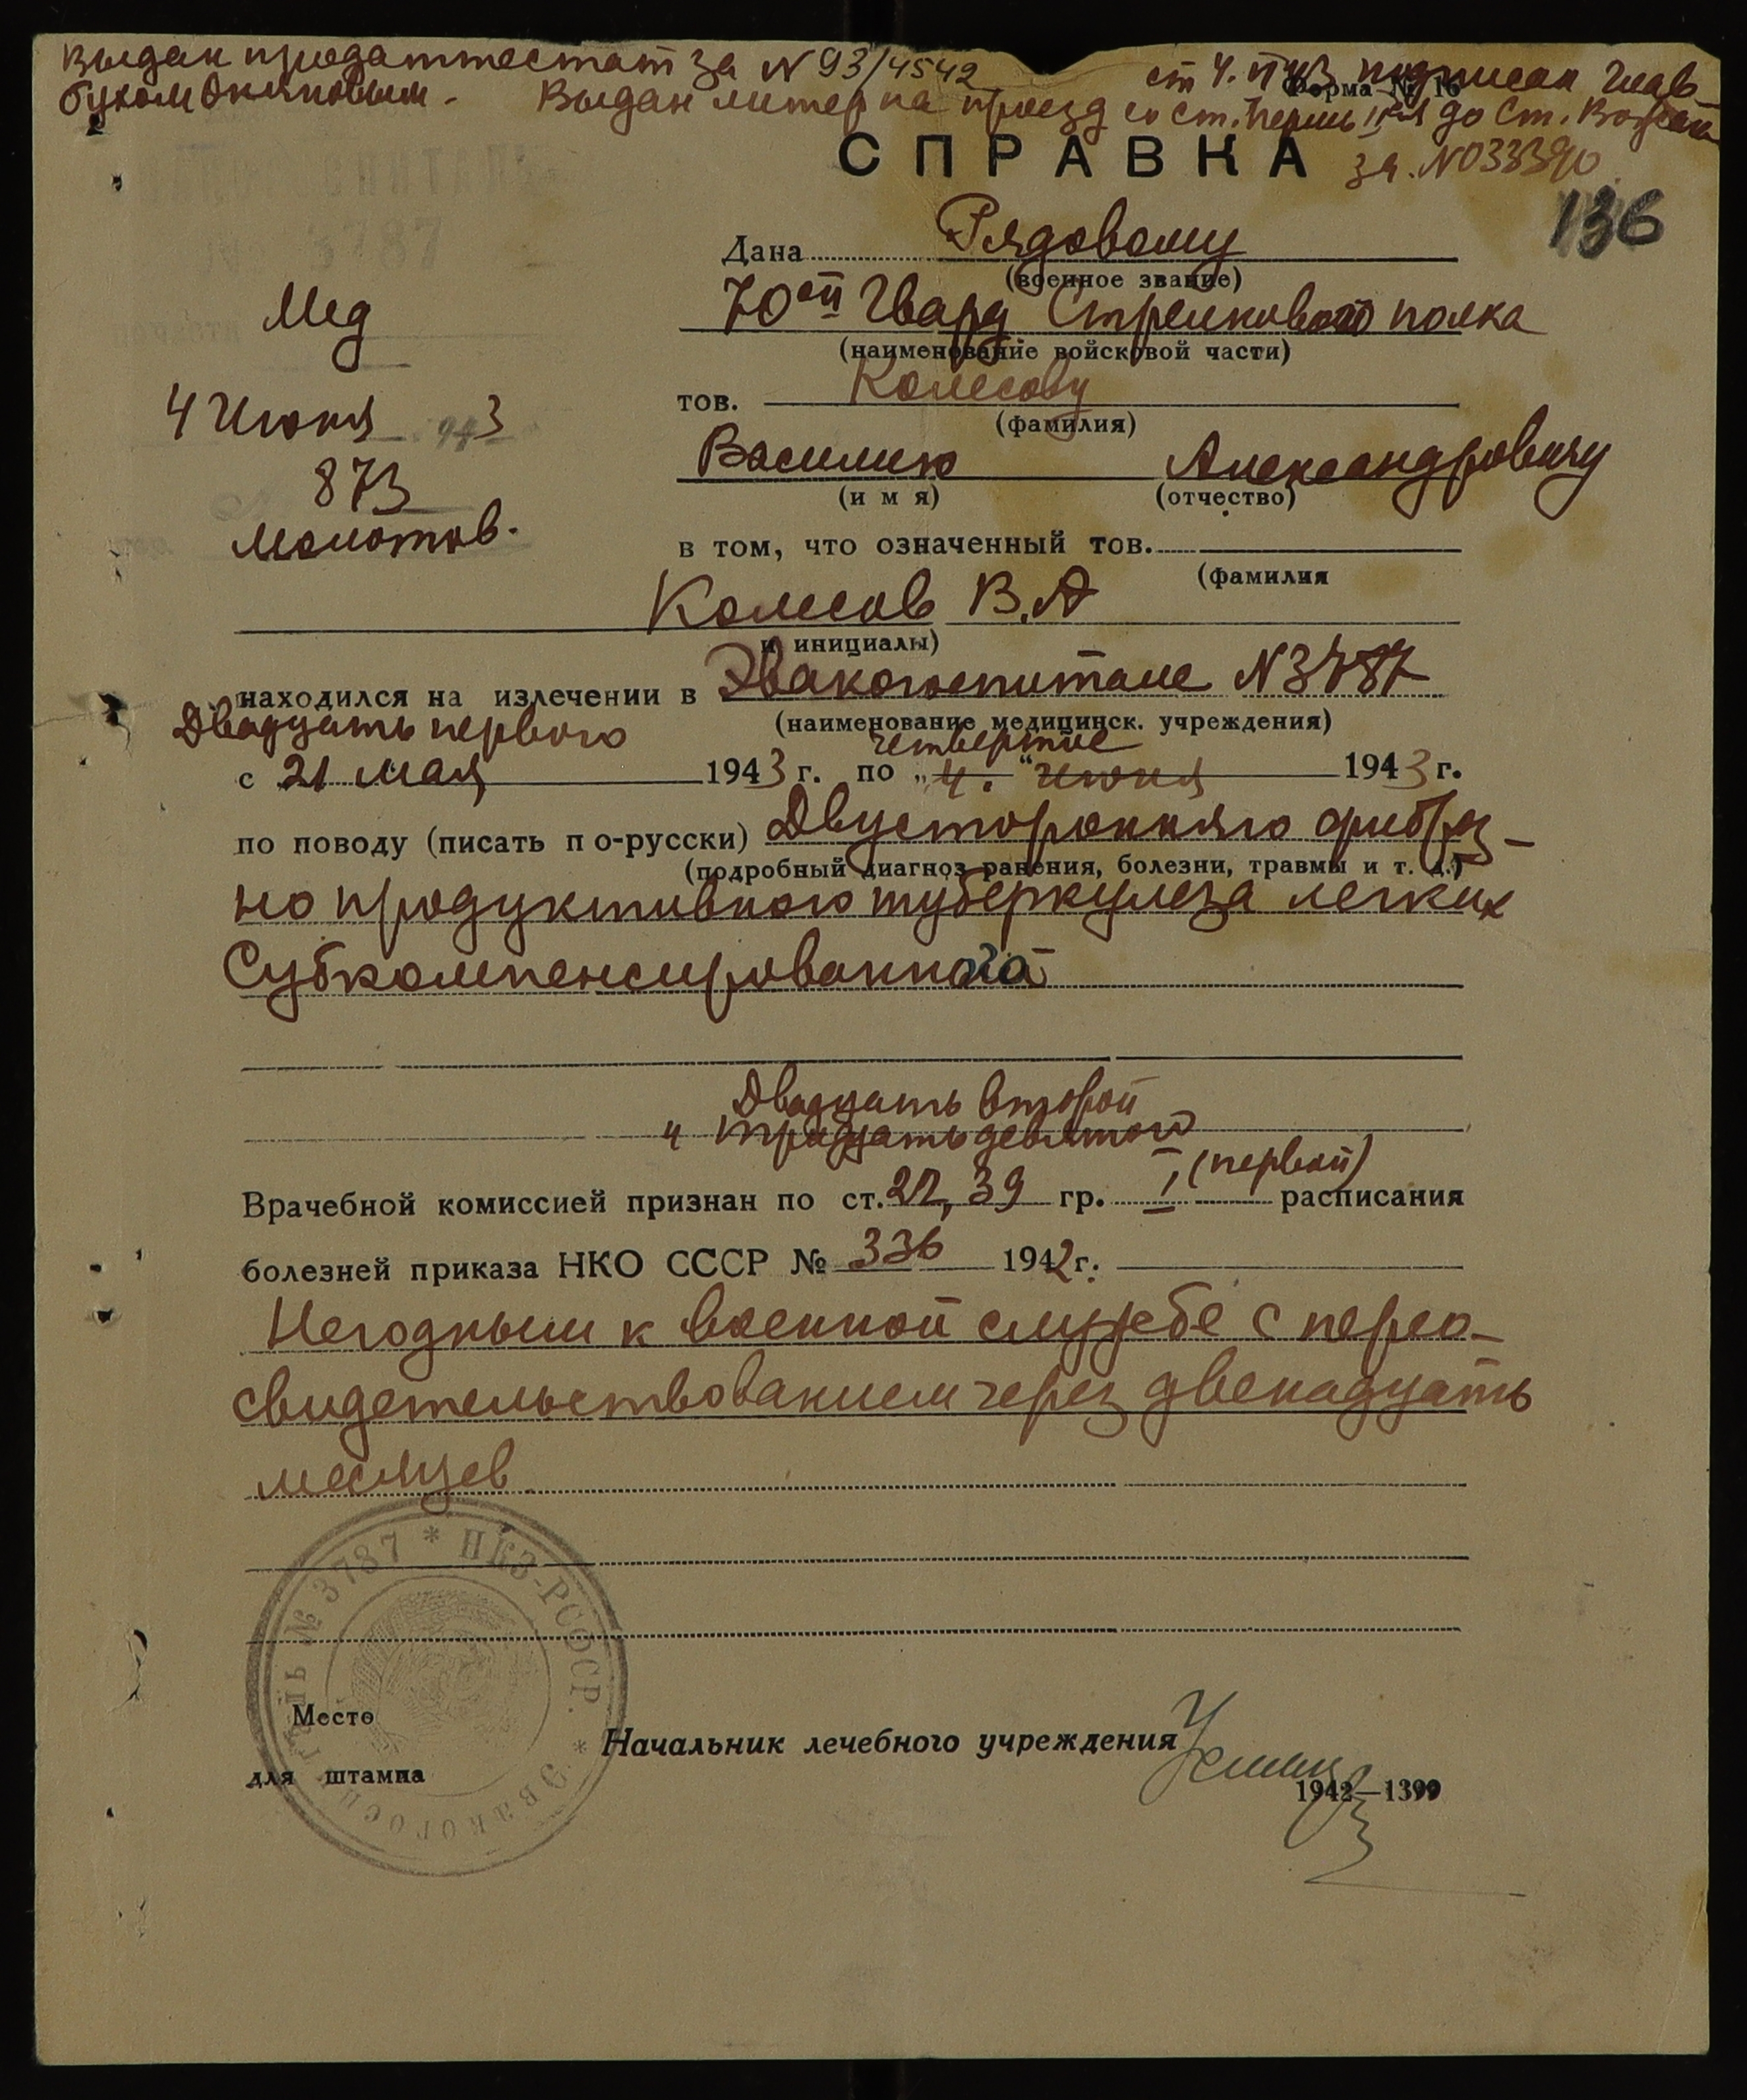 Выдан продаттестат за N 93/4542 подписан Глав
бухом
Форма № 16
Выдан литер на проезд со ст. Пермь II до ст.
за N033390
СПРАВКА
136
Дана Рядовому
(военное звание)
70ой Гвард Стрелкового полка
(наименование войсковой части)
тов. Колесову
(фамилия)
Василию Александровичу
(имя) (отчество)
Мед
4 Июня 943
873
Молотов.
в том, что означенный тов.
(фамилия
Колесов В.А
и инициалы)
находился на излечении в Эвакогоспитале N3787
(наименование медицинск. учреждения)
Двадцать первого
четвертое
с 21 мая 1943 г. по „4." Июня 1943 г.
по поводу (писать по-русски) Двустороннего фиброз-
(подробный диагноз ранения, болезни, травмы и т. д.)
но продуктивного туберкулеза легких
Субкомпенсированного
Двадцать второй
и тридцать девятой
(первой)
Врачебной комиссией признан по ст. 22, 39 гр. I расписания
болезней приказа НКО СССР № 336 1942 г.
Негодным к военной службе с перео-
свидетельствованием через двенадцать
месяцев
№ 3787 * НКЗ-РСФСР. * Эвакогоспиталь
Место
для штампа
Начальник лечебного учреждения
1942—1399